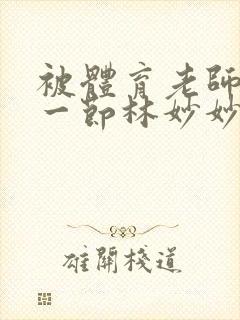 被體育老師
一節林妙妙
雄關棧道